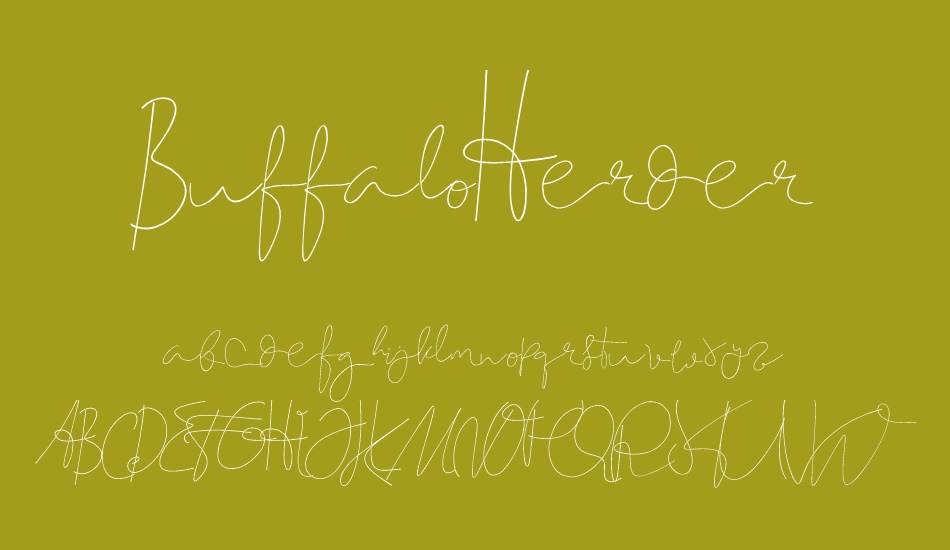 BuffaloHerder
abcdefghijklmnopqrstuvwxyz
ABCDEFGHIJKLMNOPQRSTUVW